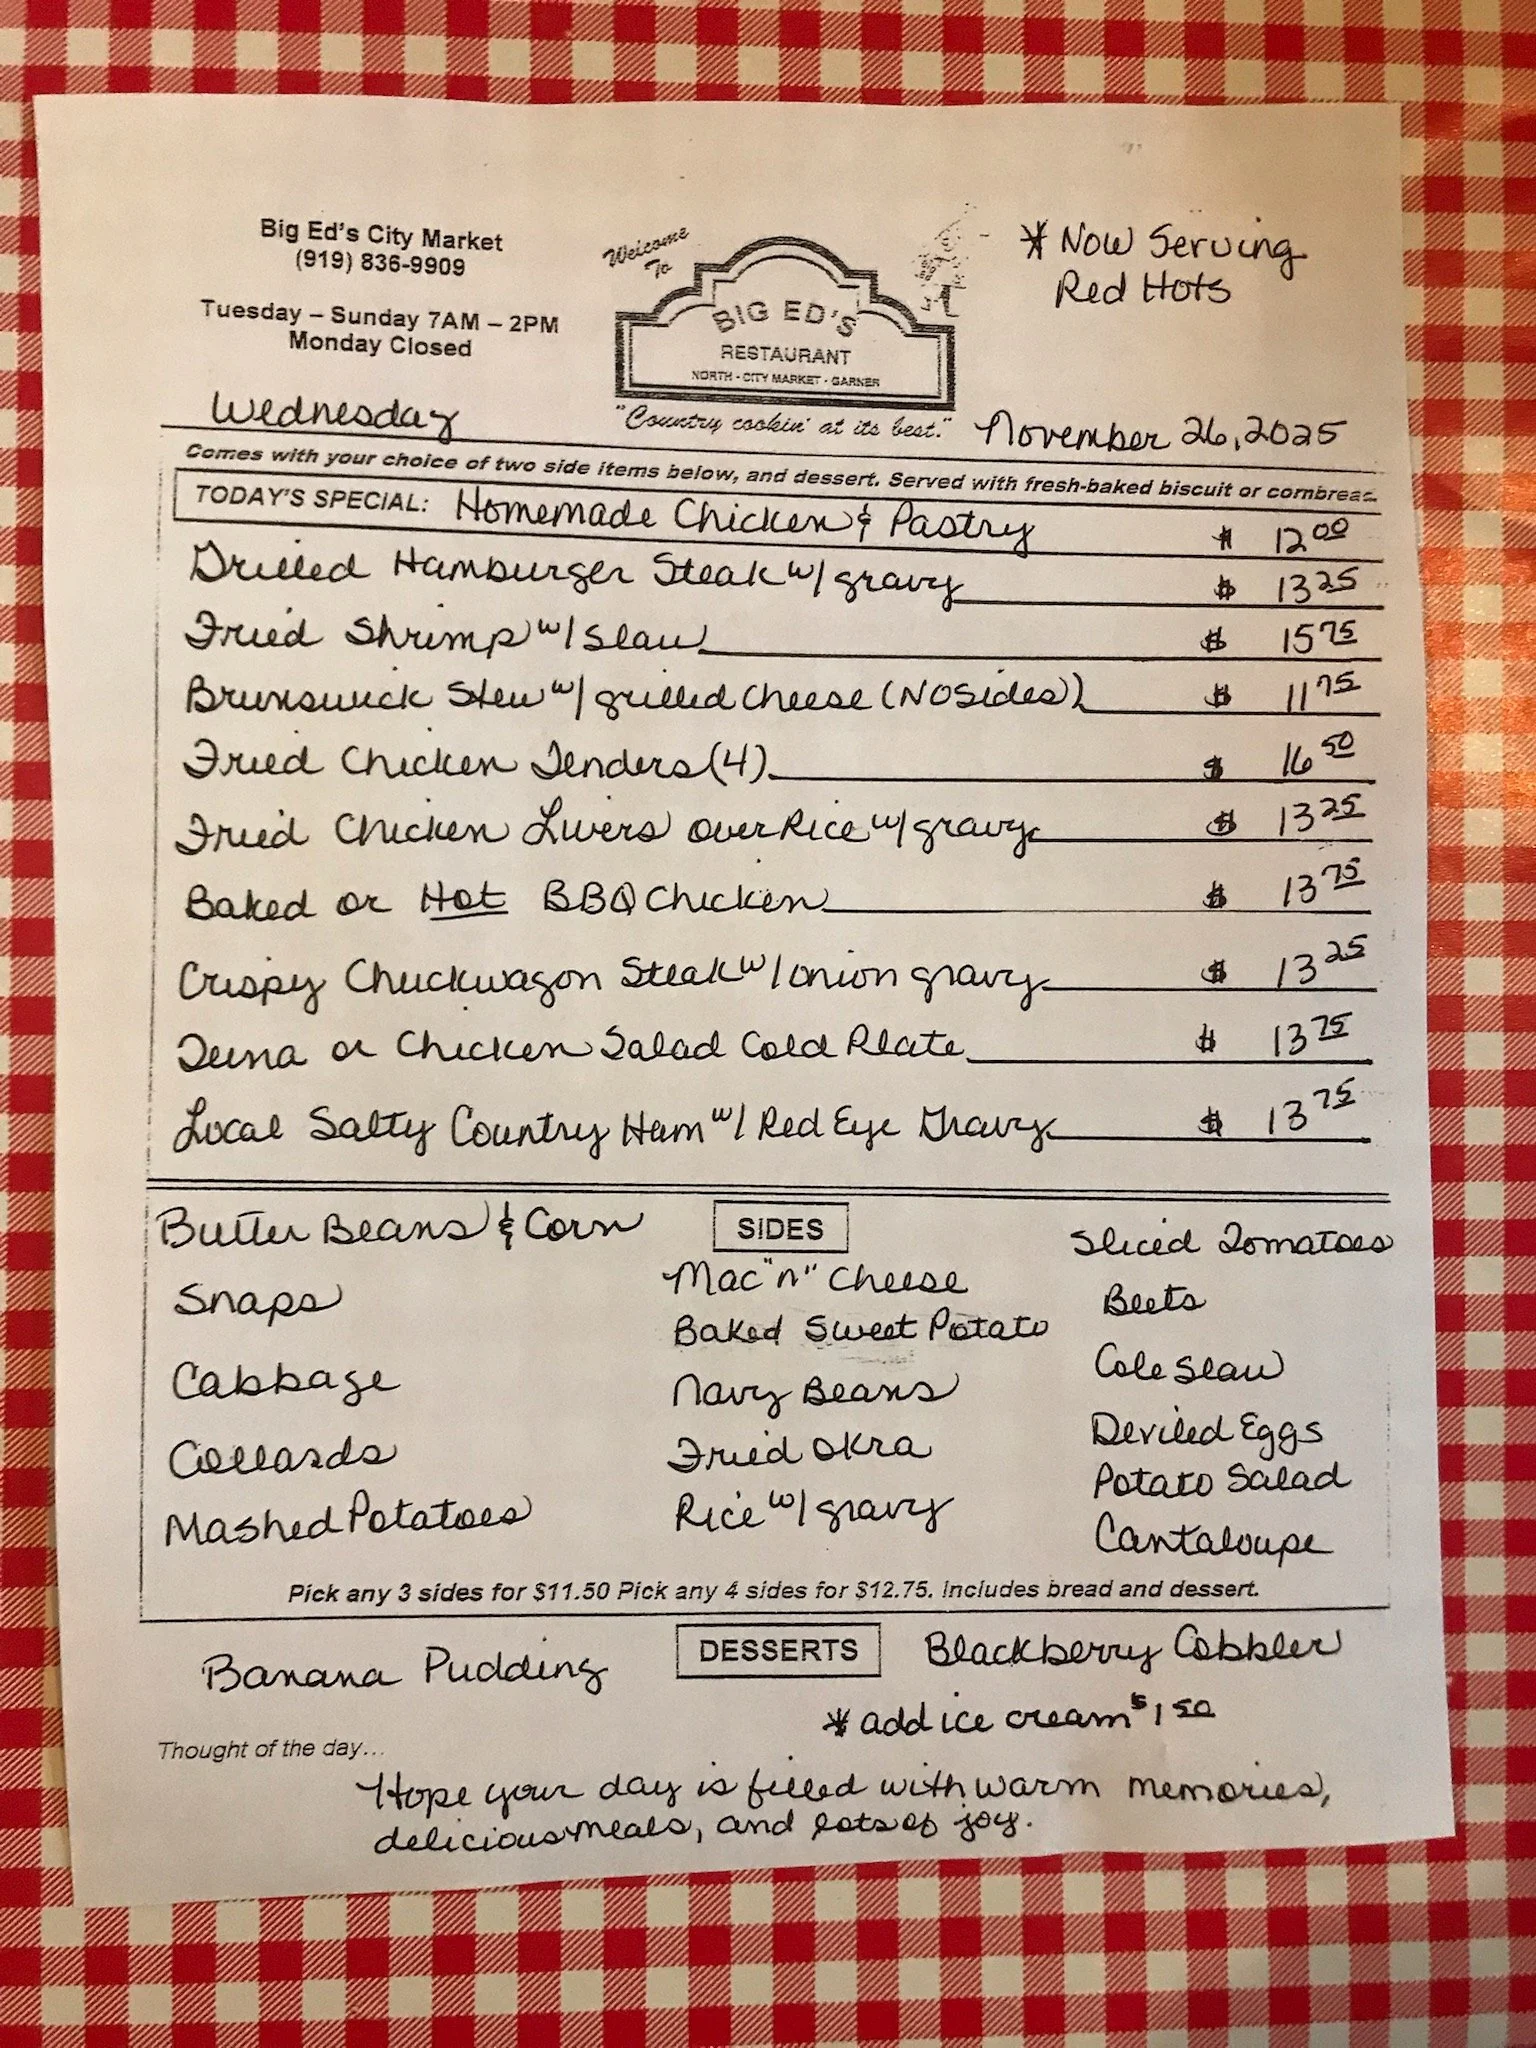 Big Ed's City Market
(919) 836-9909
Tuesday – Sunday 7AM – 2PM
Monday Closed
Welcome
To
BIG ED'S
RESTAURANT
NORTH - CITY MARKET - GARNER
"Country cookin' at its best."
* Now Serving
Red Hots
Wednesday
November 26, 2025
Comes with your choice of two side items below, and dessert. Served with fresh-baked biscuit or cornbread
TODAY'S SPECIAL: Homemade Chicken & Pastry $ 12.00
Grilled Hamburger Steak w/ gravy $ 13.25
Fried Shrimp w/ Slaw $ 15.75
Brunswick Stew w/ grilled Cheese (NO Sides) $ 11.75
Fried Chicken Tenders (4) $ 16.50
Fried Chicken Livers over Rice w/ gravy $ 13.25
Baked or Hot BBQ Chicken $ 13.75
Crispy Chuckwagon Steak w/ onion gravy $ 13.25
Tuna or Chicken Salad Cold Plate $ 13.75
Local Salty Country Ham w/ Red Eye Gravy $ 13.75
SIDES
Butter Beans & Corn
Snaps
Cabbage
Collards
Mashed Potatoes
Mac "n" Cheese
Baked Sweet Potato
Navy Beans
Fried Okra
Rice w/ gravy
Sliced Tomatoes
Beets
Cole Slaw
Deviled Eggs
Potato Salad
Cantaloupe
Pick any 3 sides for $11.50 Pick any 4 sides for $12.75. Includes bread and dessert.
DESSERTS
Banana Pudding
Blackberry Cobbler
* add ice cream $1.50
Thought of the day...
Hope your day is filled with warm memories,
delicious meals, and lots of joy.